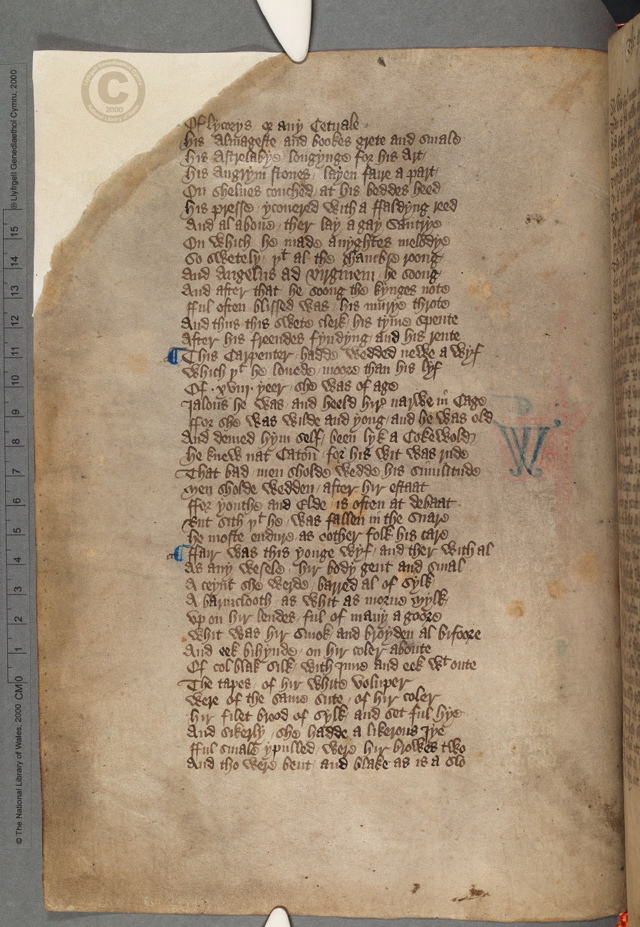 Of lycorys or any Cetuale
his Almageste and bookes grete and smale
his Astrelabye longynge for his art
his Augrym stones layen faire a part
On shelues couched at his beddes heed
his presse ycouered with a ffaldyng reed
And al aboue ther lay a gay Sautrye
On which he made anyghtes melodye
So swetely þt al the chambre roong
And Angelus ad virginem he soong
And after that he soong the kynges note
fful often blissed was his murye throte
And thus this swete clerk his tyme spente
After his freendes fyndyng and his rente
This Carpenter hadde wedded newe a wyf
Which þt he louede moore than his lyf
Of .xviij. yeer she was of age
Ialous he was and heeld hir narwe in Cage
ffor she was wilde and yong and he was old
And demed hym self been lyk a Cokewold
he knew nat Caton for his wit was rude
That bad men sholde wedde his similitude
Men sholde wedden after hir estaat
ffor youthe and Elde is often at debaat
But sith þt he was fallen in the snare
he moste endure as oother folk his care
ffair was this yonge wyf and ther with al
As any wesele hir body gent and smal
A ceynt she werde barred al of sylk
A barmclooth as whit as morne mylk
vp on hir lendes ful of many a goore
whit was hir smok and broyden al bifoore
And eek bihynde on hir coler aboute
Of col blak silk with inne and eek wt oute
The tapes of hir white voluper
were of the same sute of hir coler
hir filet brood of sylk and set ful hye
And sikerly she hadde a likerous Iye
fful smale ypulled were hir browes two
And tho were bent and blake as is a slo
W
C
2000
© Llyfrgell Genedlaethol Cymru, 2000
15
14
13
12
11
10
9
8
7
6
5
4
3
2
1
CM 0
© The National Library of Wales, 2000